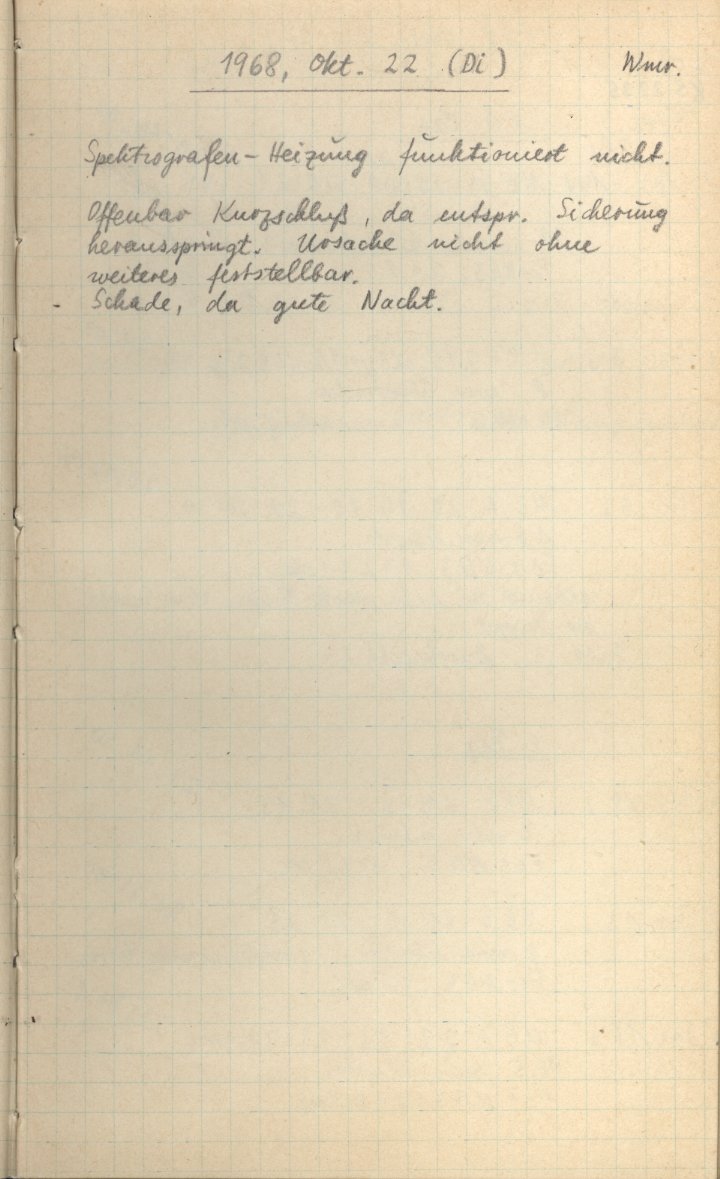 1968, Okt. 22 (Di) Wmr.
Spektrografen-Heizung funktioniert nicht.
Offenbar Kurzschluß, da entspr. Sicherung
herausspringt. Ursache nicht ohne
weiteres feststellbar.
Schade, da gute Nacht.